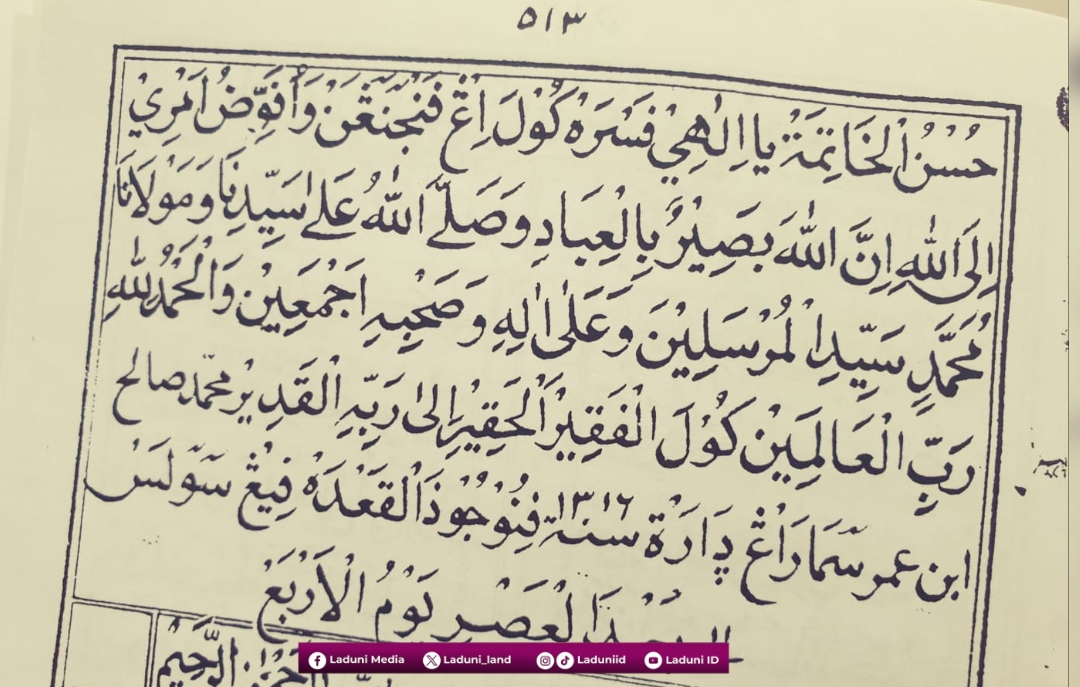 ٥١٣
حُسْنُ الْخَاتِمَةْ يَا اِلٰهِيْ فَسَرَهْ كَوُلَ اِڠْ فَنْجَنَڠَنْ وَاُفَوِّضُ اَمْرِيْ
اِلَى اللهِ اِنَّ اللهَ بَصِيْرٌ بِالْعِبَادِ وَصَلَّى اللهُ عَلىٰ سَيِّدِنَا وَمَوْلَانَا
مُحَمَّدٍ سَيِّدِ الْمُرْسَلِيْنَ وَعَلىٰ اٰلِهِ وَصَحْبِهِ اَجْمَعِيْنَ وَالْحَمْدُ لِلّٰهِ
رَبِّ الْعَالَمِيْنَ كَوُلَ الْفَقِيْرُ الْحَقِيْرُ اِلىٰ رَبِّهِ الْقَدِيْرِ محمّد صالح
ابن عمر سَمَارَاڠْ دَارَةْ سنة ١٣١٦ فِنُوْجُوْ ذَالْقَعْدَهْ فِيڠْ سَوْلَسْ
الْعَصْرِ يَوْمُ الْاَرْبَعْ
الرَّحِيْمِ
Laduni Media Laduni_land Laduniid Laduni ID